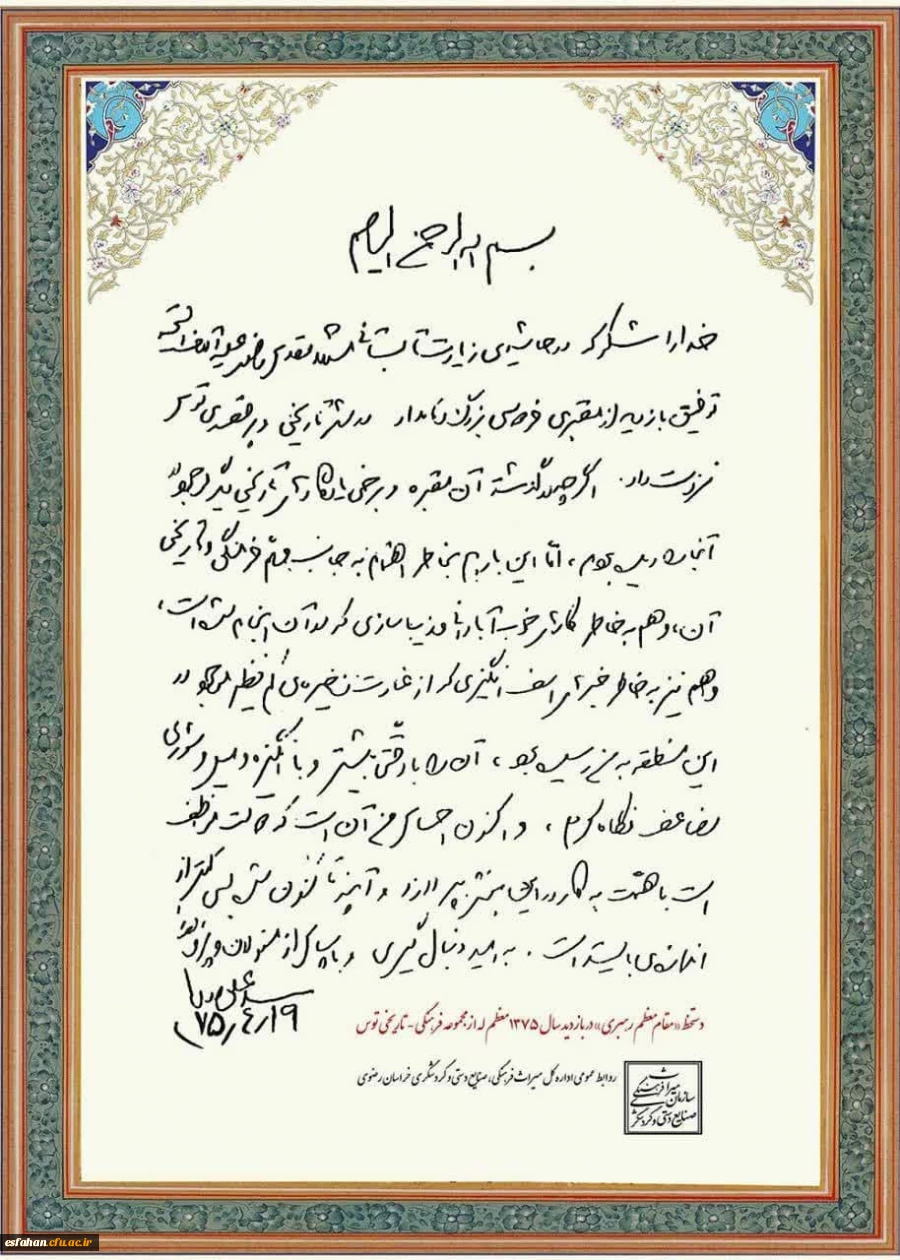 بسم الله الرحمن الرحیم
خدا را شکر که در حاشیه‌ی زیارت شتابناک مشهد مقدس رضوی علیه آلاف التحیه
توفیق بازدید از مقبره‌ی فردوسی بزرگ و نامدار در شهر تاریخی و پرقصه‌ی توس
نیز دست داد. اگر چه در گذشته آن مقبره و برخی یادگارهای تاریخی دیگر موجود در
آنجا را دیده بودم، امّا این بار هم بخاطر اهتمام به جانب مهم فرهنگی و تاریخی
آن، و هم به خاطر کارهای خوب آبادانی و زیباسازی که در آن انجام شده است،
و هم نیز به خاطر خبرهای اسف انگیزی که از غارت ذخیره‌های کم نظیر موجود در
این منطقه به من رسیده بود، آن را با دقّتی بیشتر و با انگیزه و میل و شوری
مضاعف نگاه کردم، و اکنون احساس من آن است که دولت موظف
است با همّت به کار در این بخش بپردازد و آنچه تا کنون شده بسی کمتر از
اندازه‌ی بایسته است. به امید دنبال گیری و با سپاس از مسئولان
سید علی خامنه‌ای
۷۵/۴/۱۹
دستخط «مقام معظم رهبری» در بازدید سال ۱۳۷۵ معظم له از مجموعه فرهنگی - تاریخی توس
روابط عمومی اداره کل میراث فرهنگی، صنایع دستی و گردشگری خراسان رضوی
سازمان میراث فرهنگی
صنایع دستی و گردشگری
esfahan.cfu.ac.ir